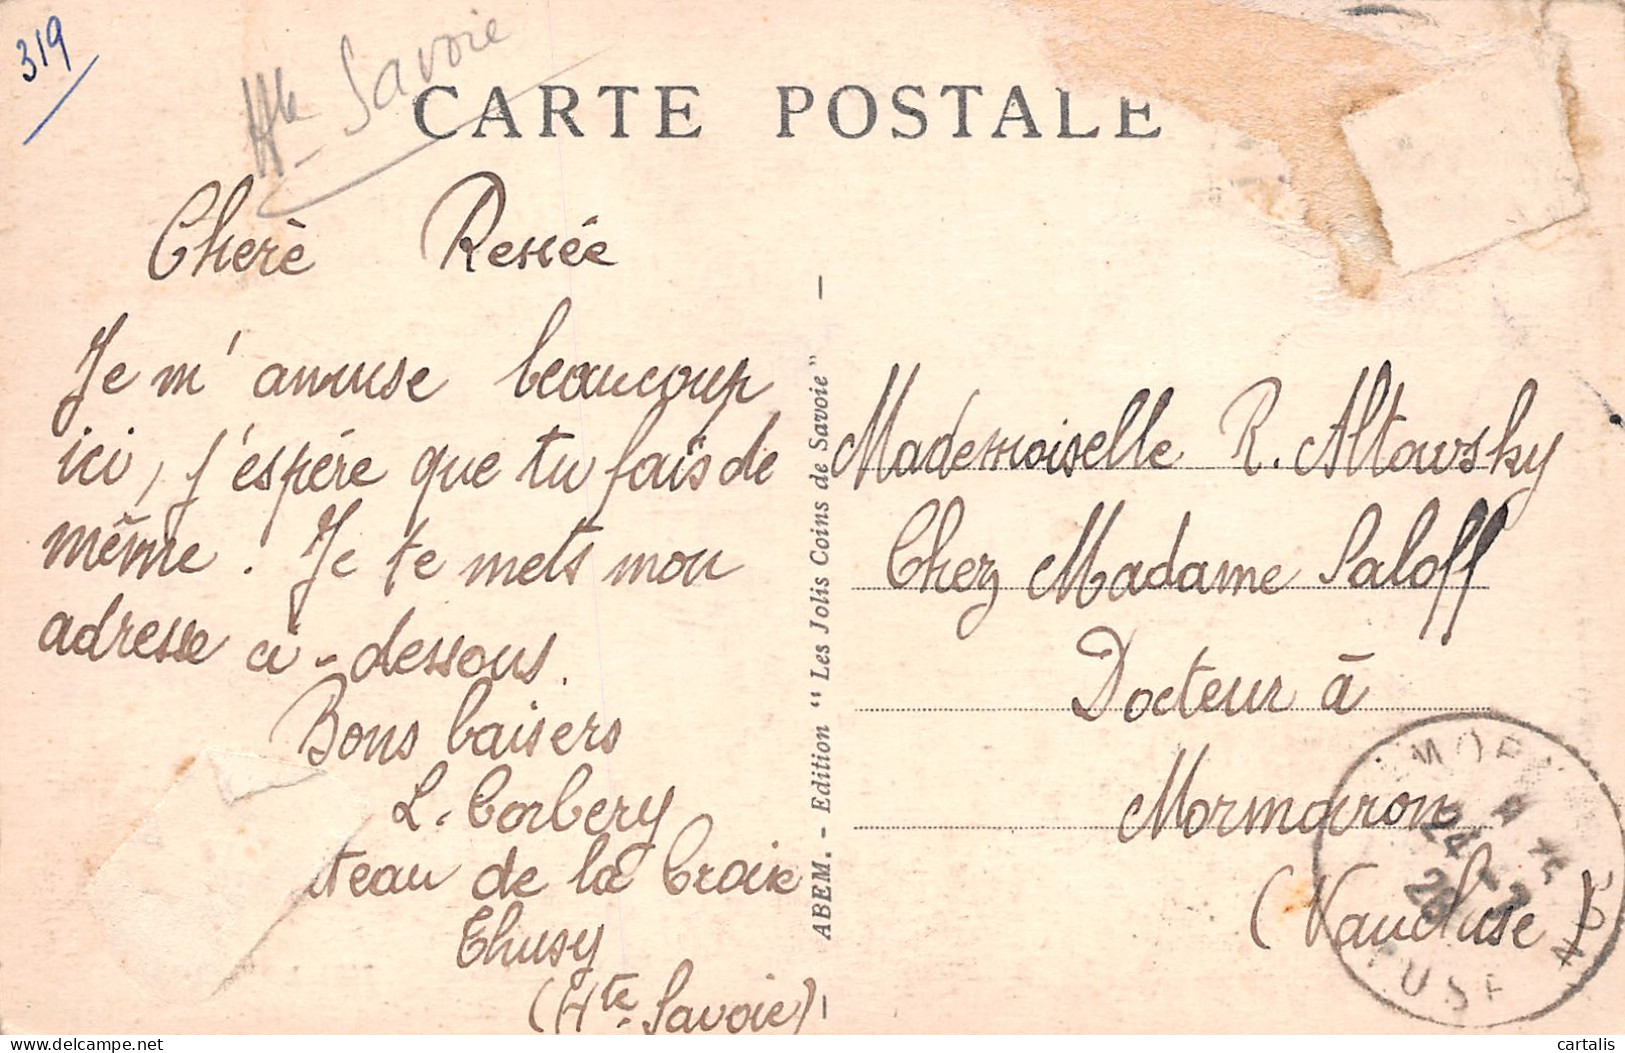 319
Hte Savoie
CARTE POSTALE
Cherè Ressée
Je m'amuse beaucoup
ici, j'espére que tu fais de
même. Je te mets mon
adresse ci-dessous.
Bons baisers
L. Corbery
teau de la Croix
Thusy
(Hte. Savoie)
ABEM. - Edition "Les Jolis Coins de Savoie"
Mademoiselle R. Altowsky
Chez Madame Saloff
Docteur à
Mormoiron
(Vaucluse)
24
cartalis